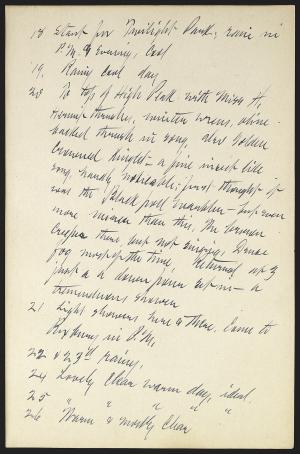 18 Start for Twilight Park; rain in
P.M. & evening, cool
19, Rainy cool day
20 To top of High Peak with Miss H,
Hermit thrushes, winter wrens, olive-
backed thrush in song, also Golden
Crowned Kinglet - a fine insect like
song, hardly noticeable; first thought it
was the Black poll warbler - but even
more insect than this. The brown
Creeper there, but not singing. Dense
fog most of the time, Returned at 3
just as a down pour set in - a
tremendous shower
21 Light showers here & there. Come to
Roxbury in P.M.
22 & 23d rainy,
24 Lovely clear warm day, ideal
25 " " " "
26 Warm & mostly clear